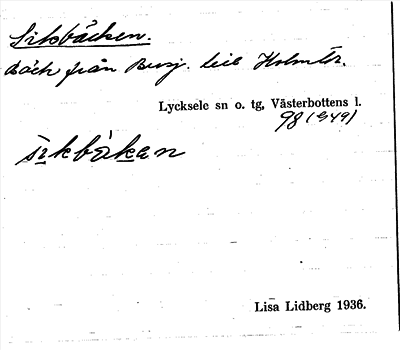 Sikbäcken.
Bäck från Busj. till Holmtr.
Lycksele sn o. tg, Västerbottens l.
98 (949)
sikbäkan
Lisa Lidberg 1936.